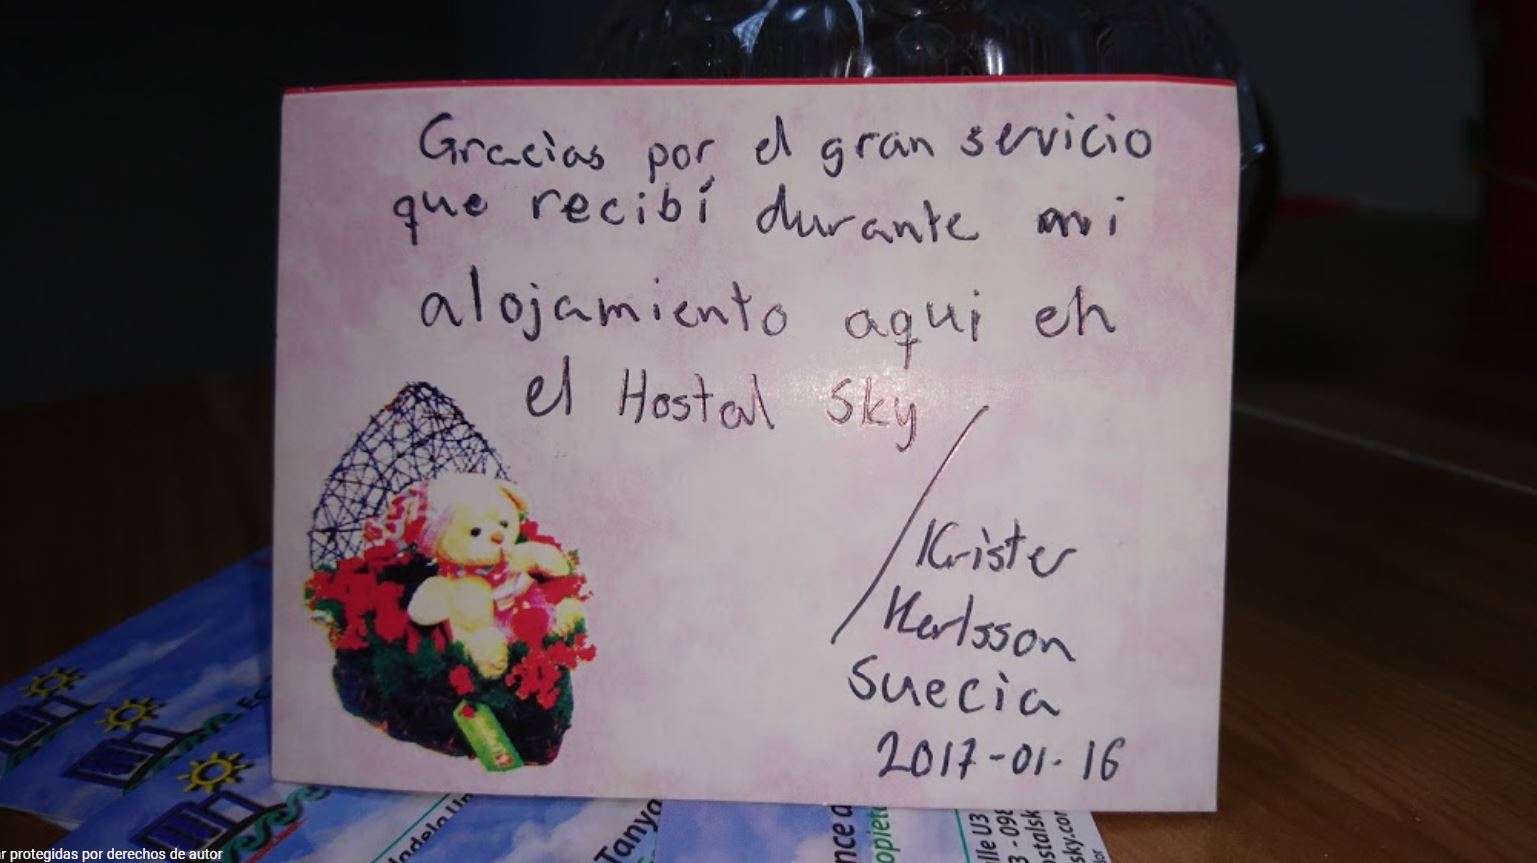 Gracias por el gran servicio
que recibí durante mi
alojamiento aqui en
el Hostal Sky
/Krister
Karlsson
Suecia
2017-01-16
Tanya
nce a
opiet
lle U3
3 - 098
stalsk
sky.cor
r protegidas por derechos de autor